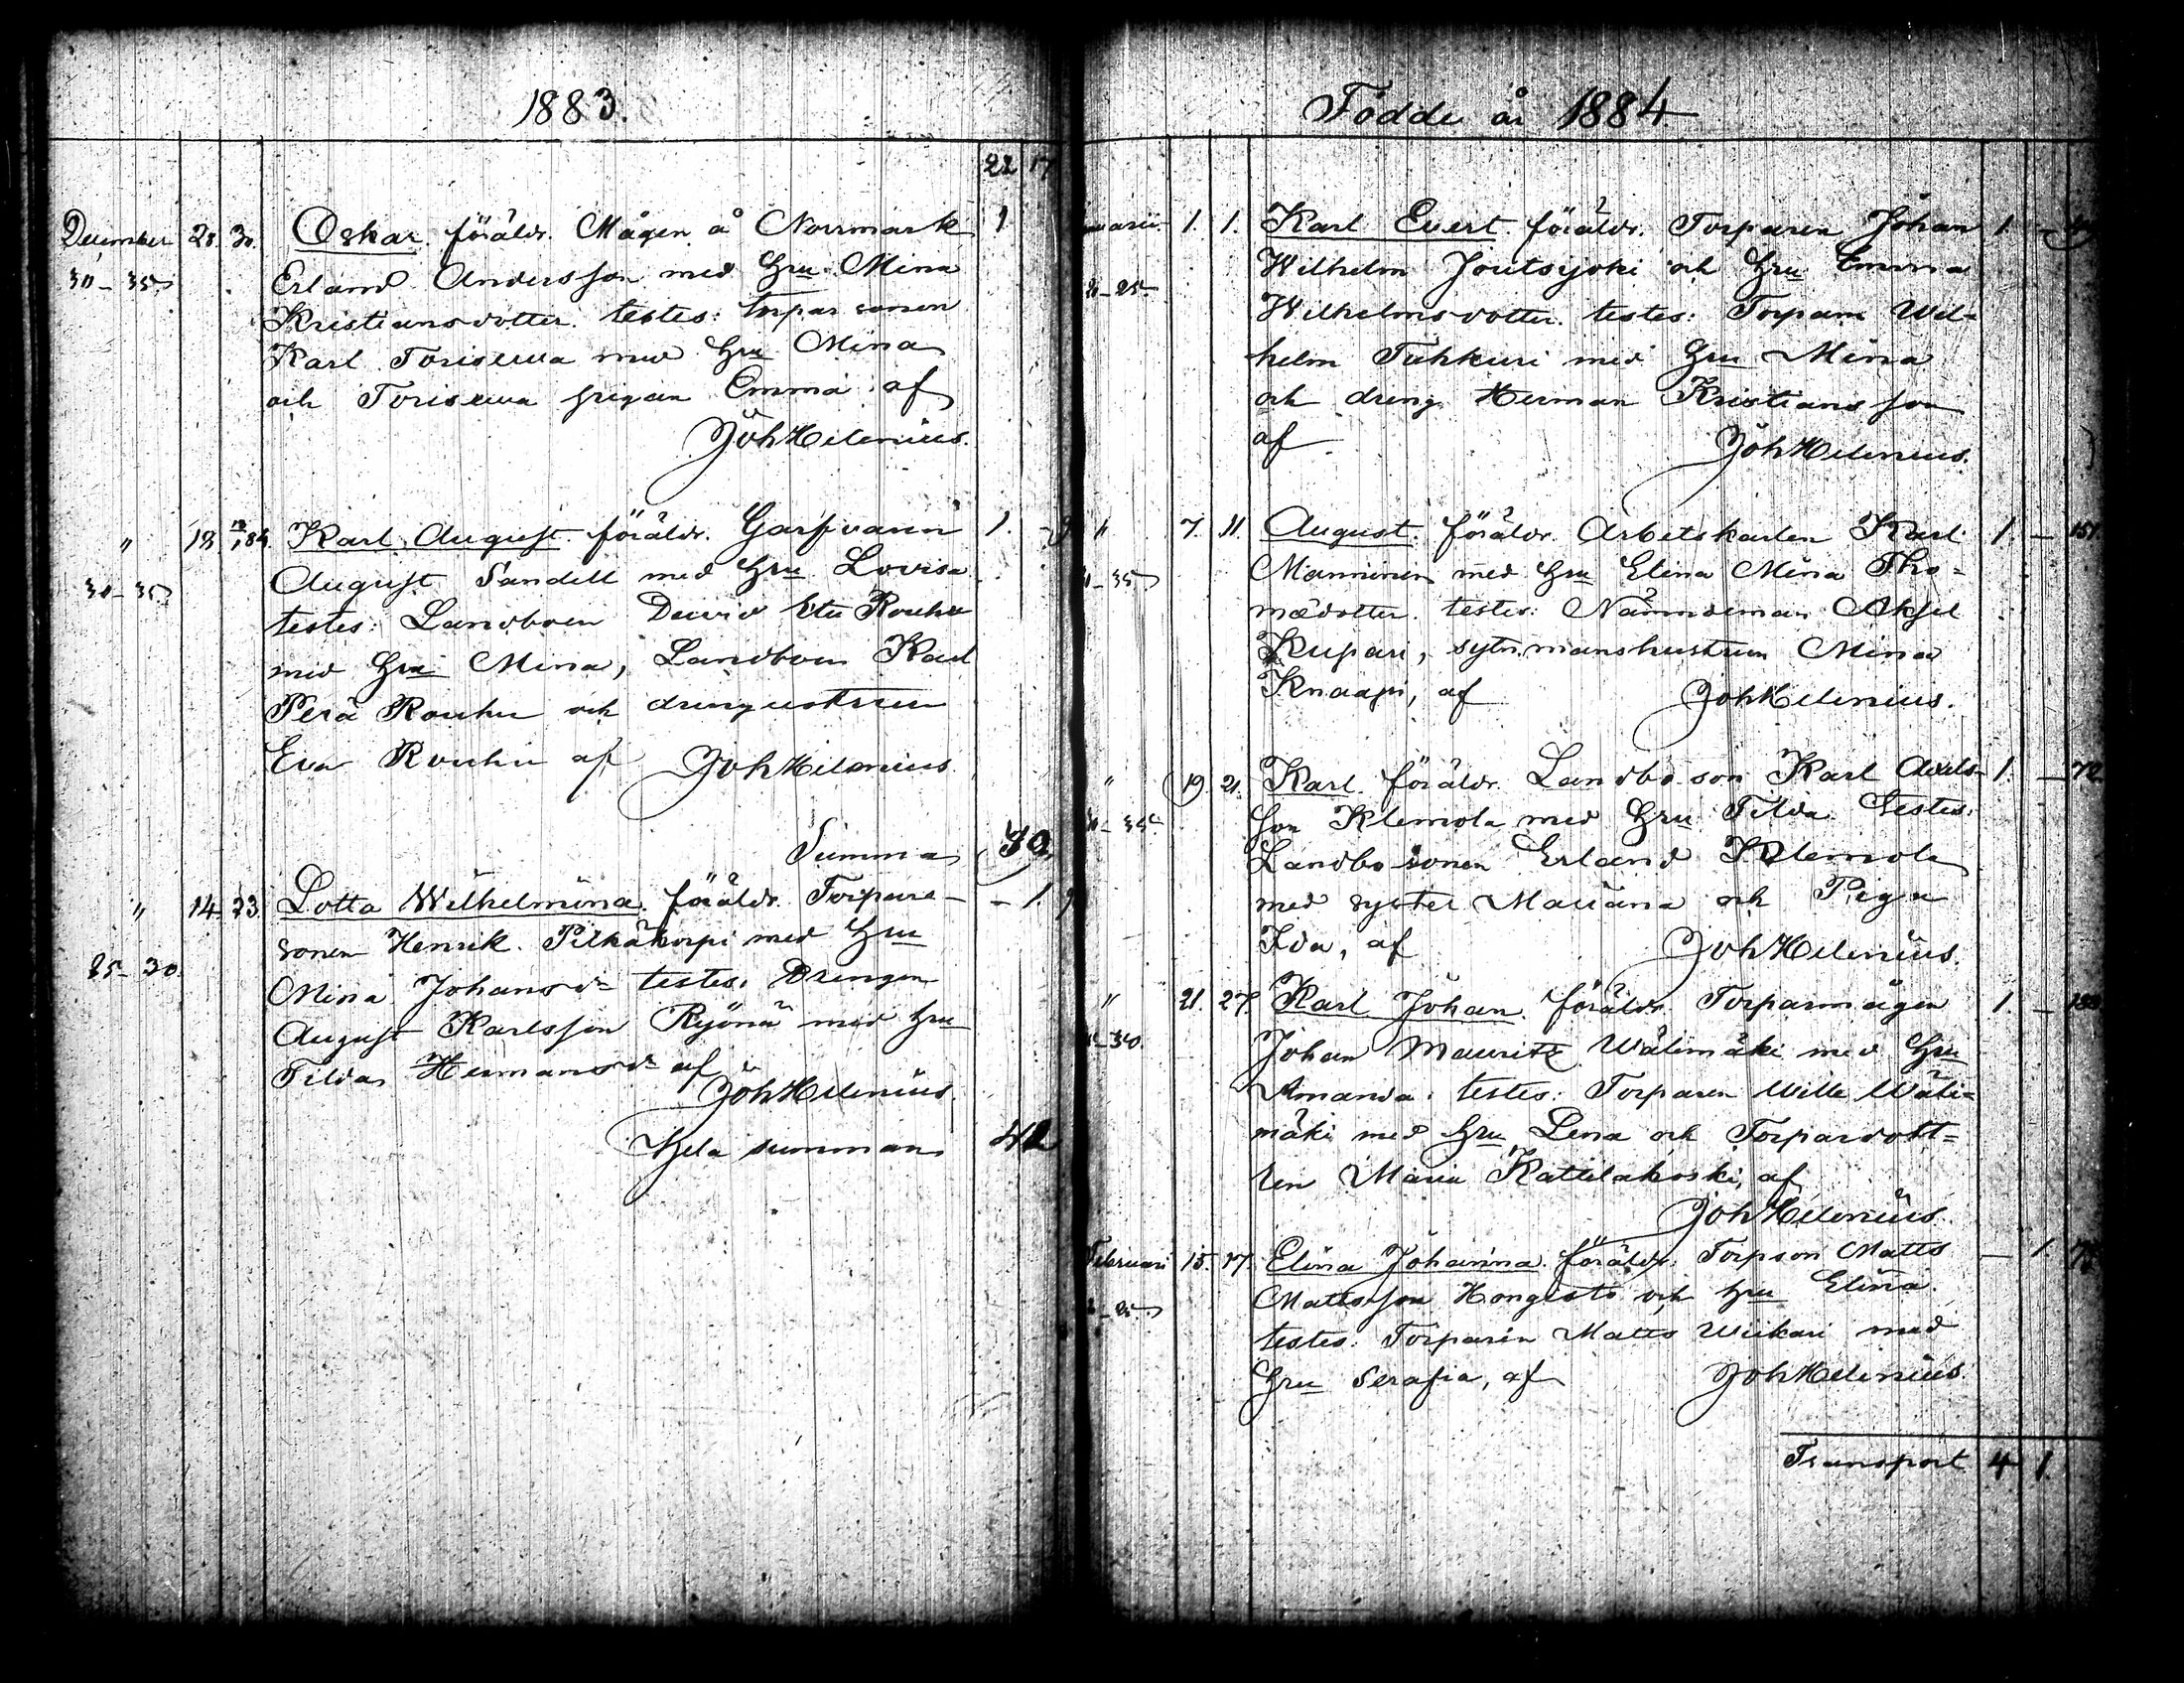 1883.
22 17
December 28. 30. Oskar. föräldr. Mågen å Norrmark 1
30–35 Erland Andersson med Hru Mina
Kristiansdotter. testes: torpar sonen
Karl Toriseva med Hru Mina
och Toriseva pigan Emma af
Joh Helenius.
" 18 13/1 84. Karl August. föräldr. Garfvarin 1.
30–35 August Sandell med Hru Lovisa
testes: Landboen David Etu Rouhu
med Hru Mina, Landboen Karl
Perä Rouhu och drengustrun
Eva Rouhu af Joh Helenius
Summa
" 14 23 Lotta Wilhelmina. föräldr. Torpare- – 1
25–30. sonen Henrik Pitkäkorpi med Hru
Mina Johansdr testes: Drengen
August Karlsson Ryönä med Hru
Tilda Hermansdr af
Joh Helenius.
Hela summan 42
Födde år 1884
1. 1. Karl Evert. föräldr. Torparen Johan 1 –
25 Wilhelm Joutsijoki och Hru Emma
Wilhelmsdotter. testes: Torparen Wil=
helm Tuhkuri med Hru Mina
och dreng Herman Kristiansson
af Joh Helenius.
" 7. 11 August. föräldr. Arbetskarlen Karl 1 – 151
35 Manninen med Hru Elina Mina Tho=
mædotter. testes: Nämndeman Aksel
Kupari, sytn.manshustrun Mina
Knaapi, af Joh Helenius.
" 19. 21. Karl. föräldr. Landbo son Karl Axels- 1. – 72
35 son Klemola med Hru Tilda. testes:
Landbo sonen Erland Klemola
med syster Mariana och Piga
Ida, af Joh Helenius.
" 21. 27. Karl Johan. föräldr. Torparmågen 1. –
30. Johan Mauritz Wälimäki med Hru
Amanda. testes: Torparen Wille Wäli=
mäki med Hru Lena och Torpardott=
ren Maria Kattilakoski, af
Joh Helenius.
Februari 15. 17. Elina Johanna. föräldr. Torpson Matts – 1.
Mattsson Hongisto och Hru Elina.
testes: Torparen Matts Wiikari med
Hru Serafia, af Joh Helenius.
Transport 4 1.